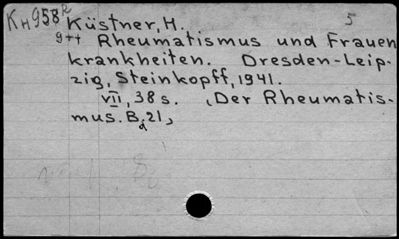 KH958R Küstner, H. 5
9++ Rheumatismus und Frauen
krankheiten. Dresden-Leip-
zig, Steinkopff, 1941.
VII, 38 s. (Der Rheumatis-
mus. Bd 21)